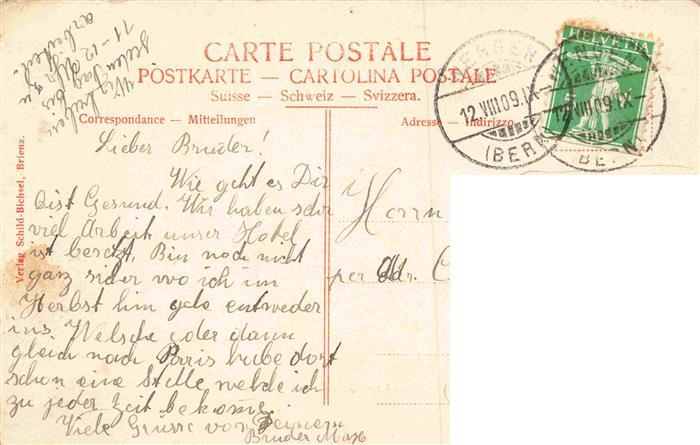 CARTE POSTALE
POSTKARTE — CARTOLINA POSTALE
Suisse — Schweiz — Svizzera.
Correspondance — Mitteilungen
Adresse — Indirizzo
HELVETIA
12.VIII.09.IX
(BERN)
12.VIII.09.IX
(BERN)
Verlag Schild-Bichsel, Brienz.
Wir haben
jeden Tag bis
11-12 Uhr zu
arbeiten.
Lieber Bruder!
Wie geht es Dir
bist Gesund. Wir haben sehr
viel Arbeit unser Hotel
ist besetzt. Bin noch nicht
ganz sicher wo ich im
Herbst hin gehe entweder
ins Welsche oder dann
gleich nach Parris habe dort
schon eine Stelle welche ich
zu jeder Zeit bekomme.
Viele Grüsse von Deinem
Bruder Max
Herrn
per Adr.